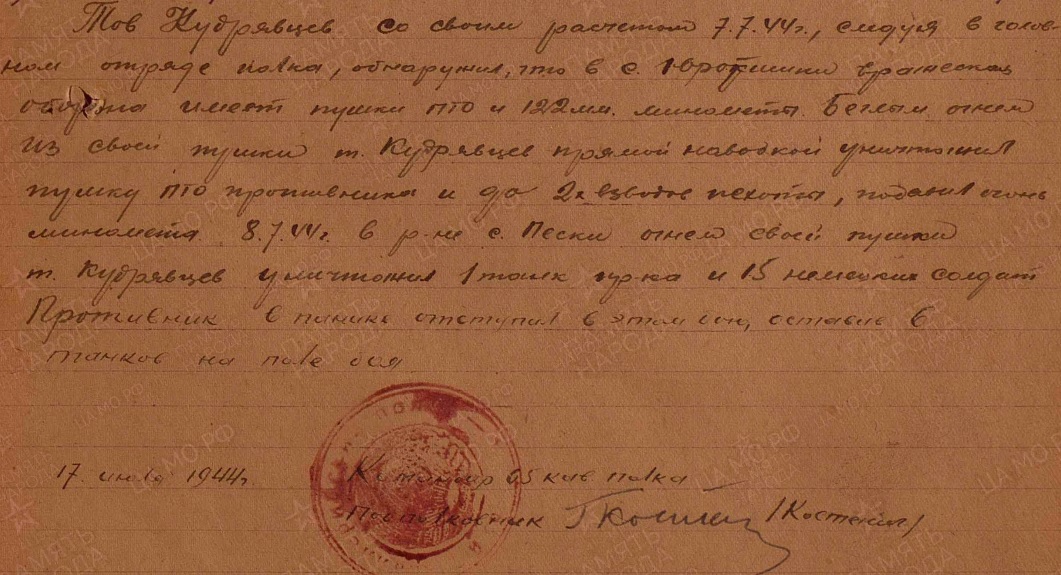 Тов Кудрявцев со своим расчетом 7.7.44г., следуя в голов-
ном отряде полка, обнаружил, что в с. вражеская
оборона имеет пушки ПТО и 122мм. минометы. Беглым огнем
из своей пушки т. Кудрявцев прямой наводкой уничтожил
пушку ПТО противника и до 2х взводов пехоты, подавил огонь
миномета. 8.7.44г. в р-не с. Пески огнем своей пушки
т. Кудрявцев уничтожил 1 танк пр-ка и 15 немецких солдат
Противник в панике отступил в этом бою, оставив 6
танков на поле боя
17. июля 1944г. Командир 65 кав полка
Подполковник /Костенил/